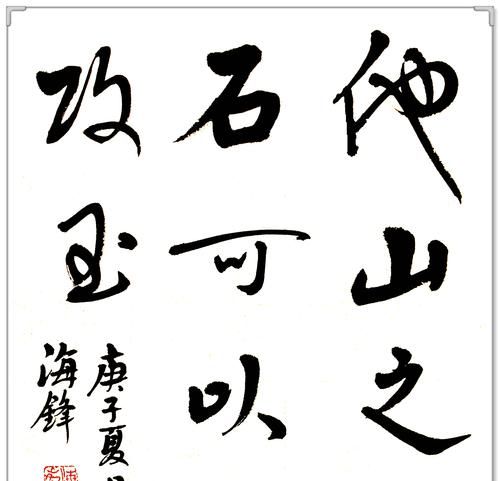 他山之
石可以
攻玉
庚子夏
海鋒